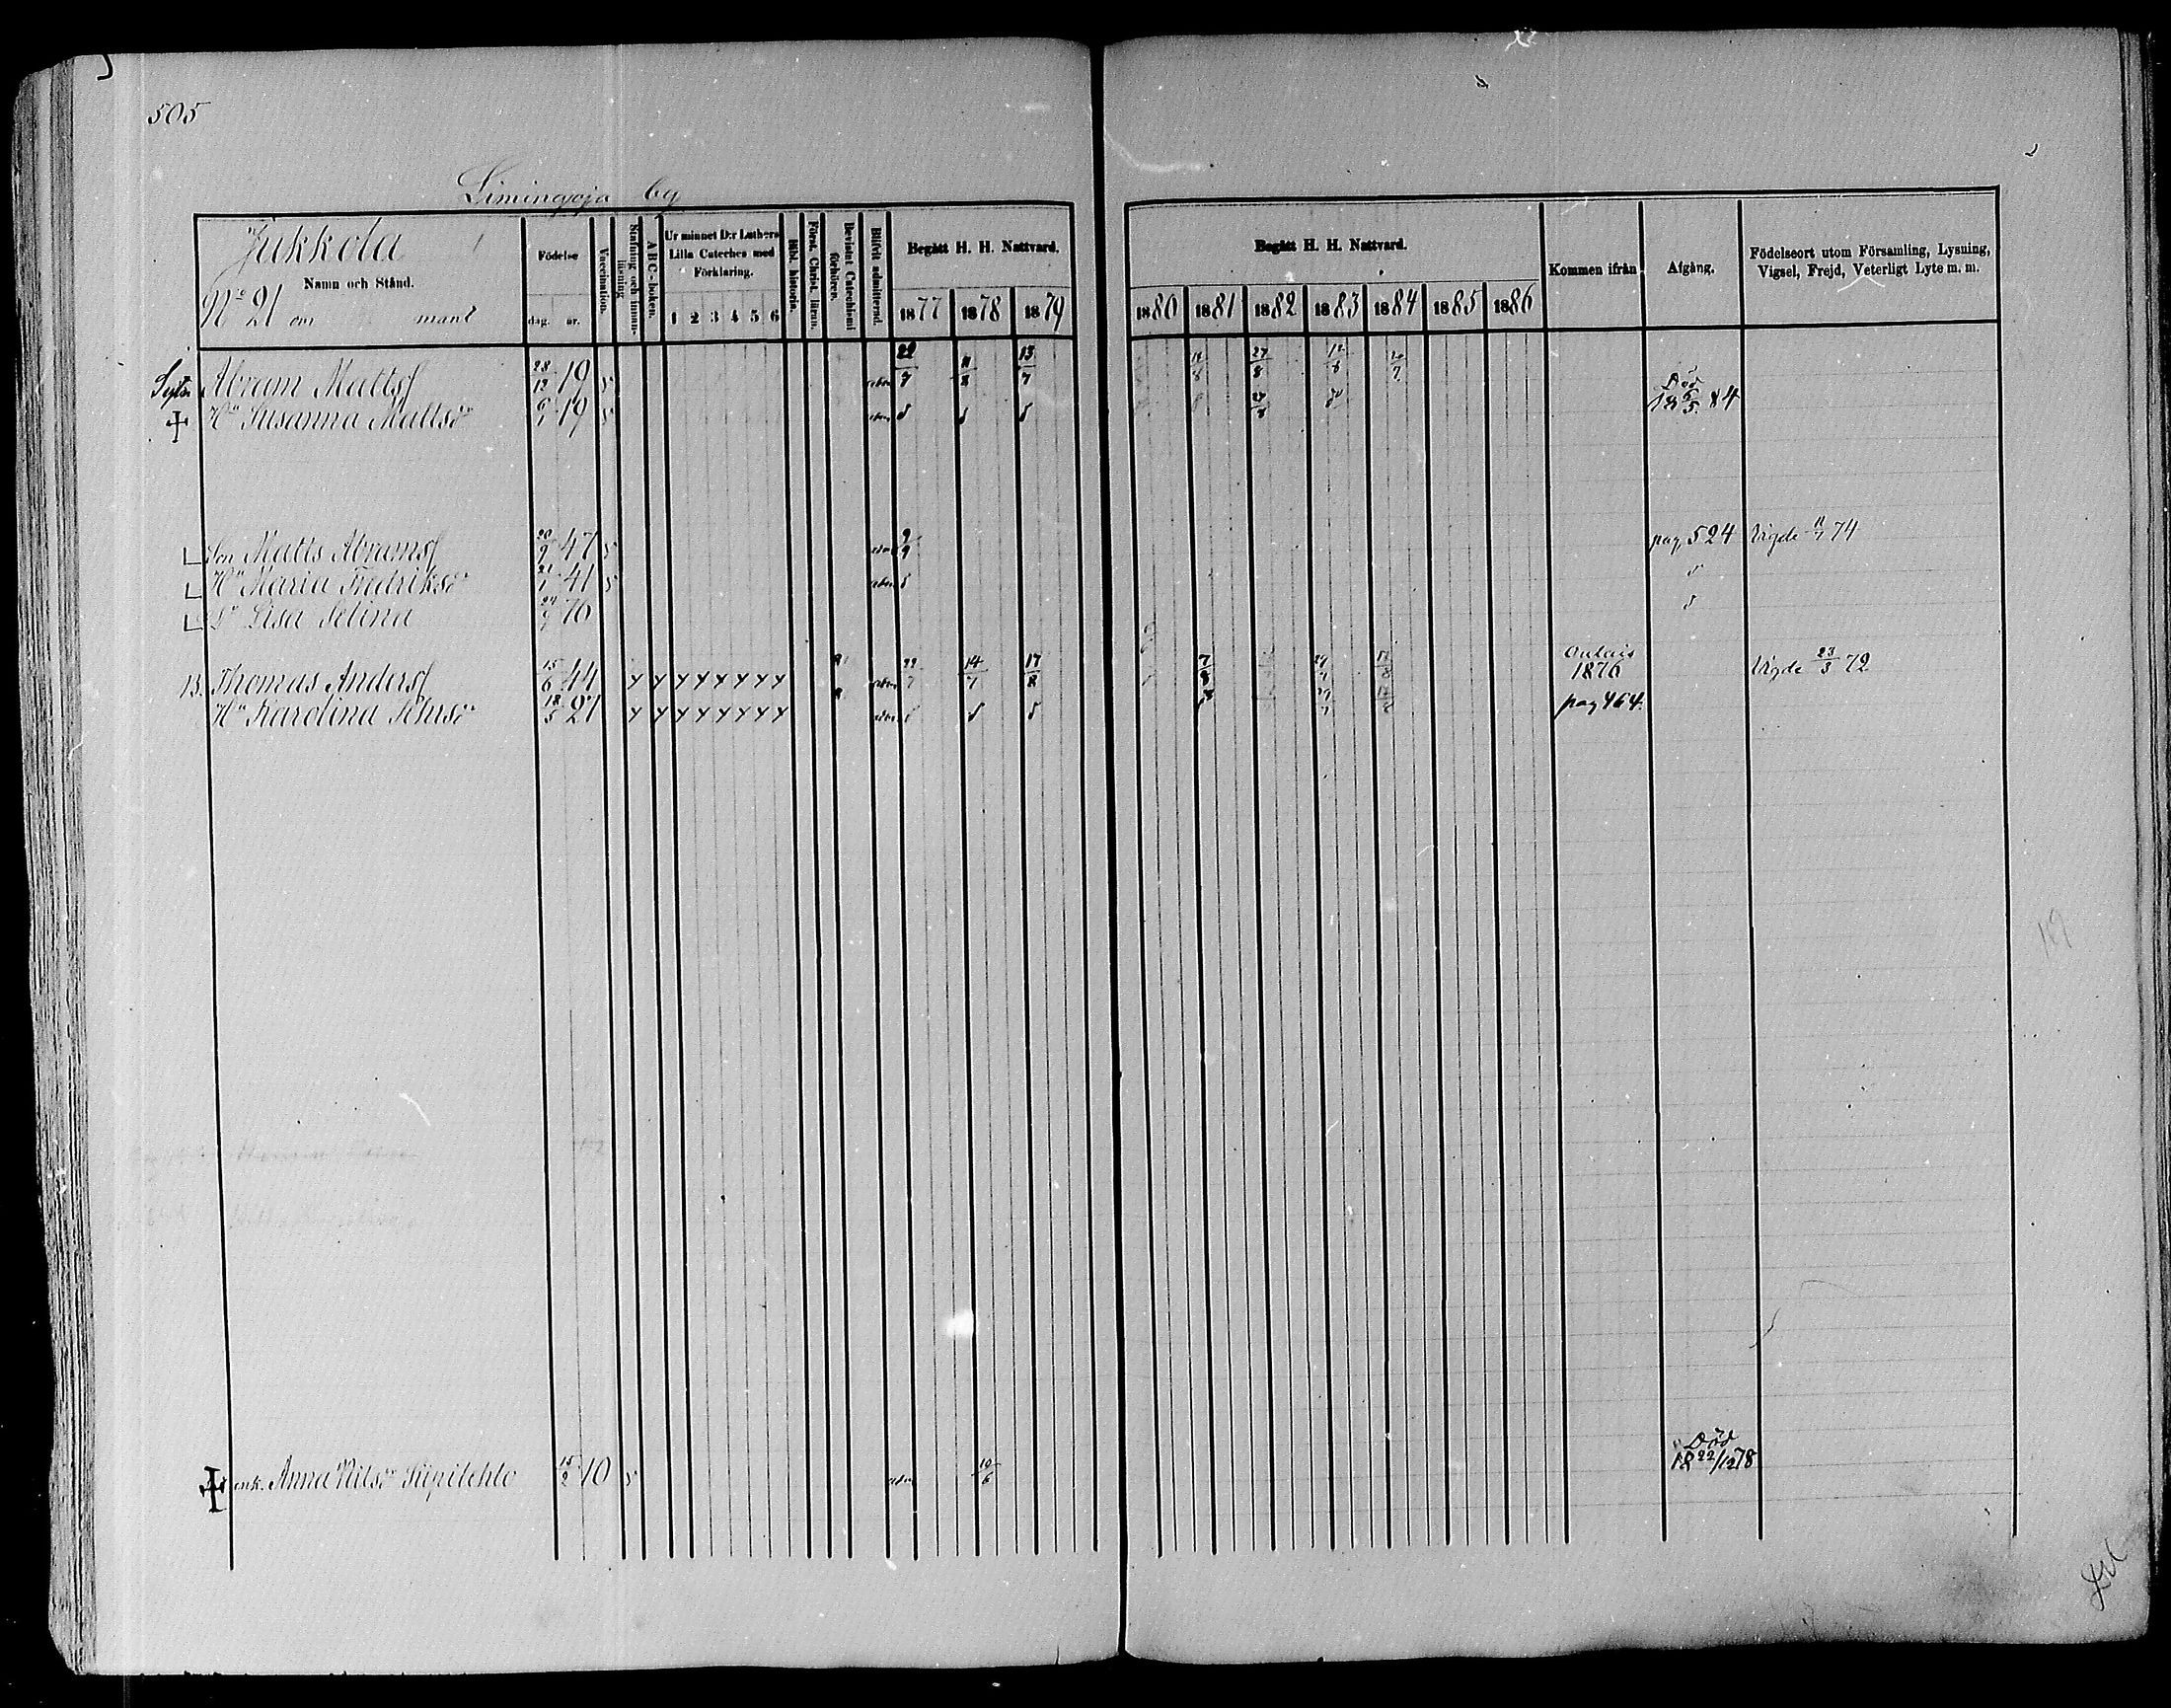 505
Limingoja by
Jukkola
Namn och Stånd.
No 21 om mant
Födelse
dag. år.
Vaccination.
Stafning och innan-läsning
ABC-boken.
Ur minnet D:r Luthers
Lilla Cateches med
Förklaring.
1 2 3 4 5 6
Bibl. historia.
Först. Christ. läran.
Bevistat Catechismi förhören.
Blifvit admitterad.
Begått H. H. Nattvard.
1877 1878 1879
Begått H. H. Nattvard.
1880 1881 1882 1883 1884 1885 1886
Kommen ifrån
Afgång.
Födelseort utom Församling, Lysning,
Vigsel, Frejd, Veterligt Lyte m. m.
Abram Matts 28/12 19 22/7 11/8 13/7 27/8
Hu Susanna Mattsdr 19 27/8 Död 18 5/5 84
Son Matts Abrams 20/9 47 9/9 pag 524 Vigde 11/7 74
Hu Maria Fredriksdr 21/1 41
Dr Lisa Selina 76
B. Thomas Anders 15/6 44 y y y y y y y y 22/7 14/7 17/8 7/8 1876 Vigde 23/3 72
Hu Karolina 18/5 27 y y y y y y y y pag 464.
enk. Anna Nilsdr Siipilehto 15/2 10 10/6 Död 18 22/12 78